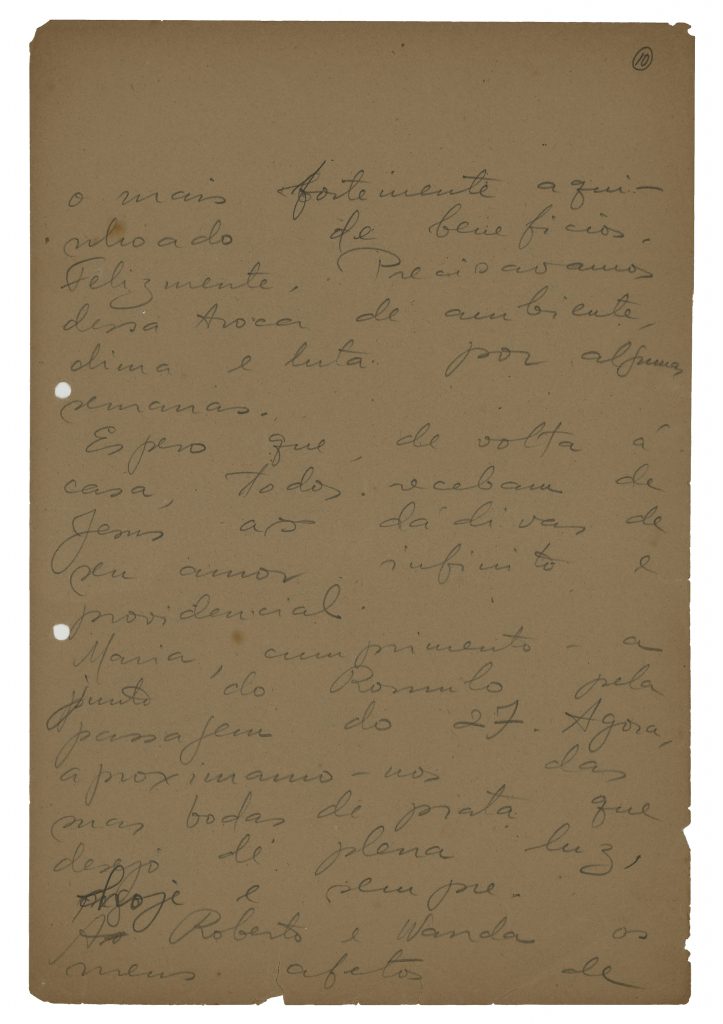 10
o mais fortemente aqui-
nhoado de beneficios.
Felizmente. Precisavamos
dessa troca de ambiente,
clima e luta por algumas
semanas.
Espero que, de volta á
casa, todos recebam de
Jesus as dádivas de
seu amor infinito e
providencial.
Maria, cumprimento-a
junto do Romulo pela
passagem do 27. Agora,
aproximamo-nos das
suas bodas de prata que
desejo de plena luz,
hoje e sempre.
Ao Roberto e Wanda os
meus afetos de